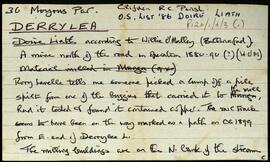 36 Moyrus Par. Clifden R.C. Parish
DERRYLEA O.S. LIST '86 DOIRE LIATH
Doire Liath according to Willie O'Malley (Ballinafad).
A mine north of the road in operation 1880-90 (?) (WOM)
Material worked in
Rory Lavelle tells me someone picked a lump of a pile
spilt from one of the buggies that carried it to
had it tested & found it contained copper. The track
seems to have been on the way marked as a path on OS 1899
from E. end of Derrylea L.
The milling buildings are on the N. bank of the stream